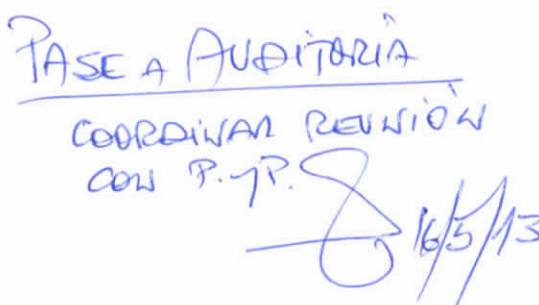 PASE A AUDITORÍA
COORDINAR REUNIÓN
CON P. y P.
16/5/13